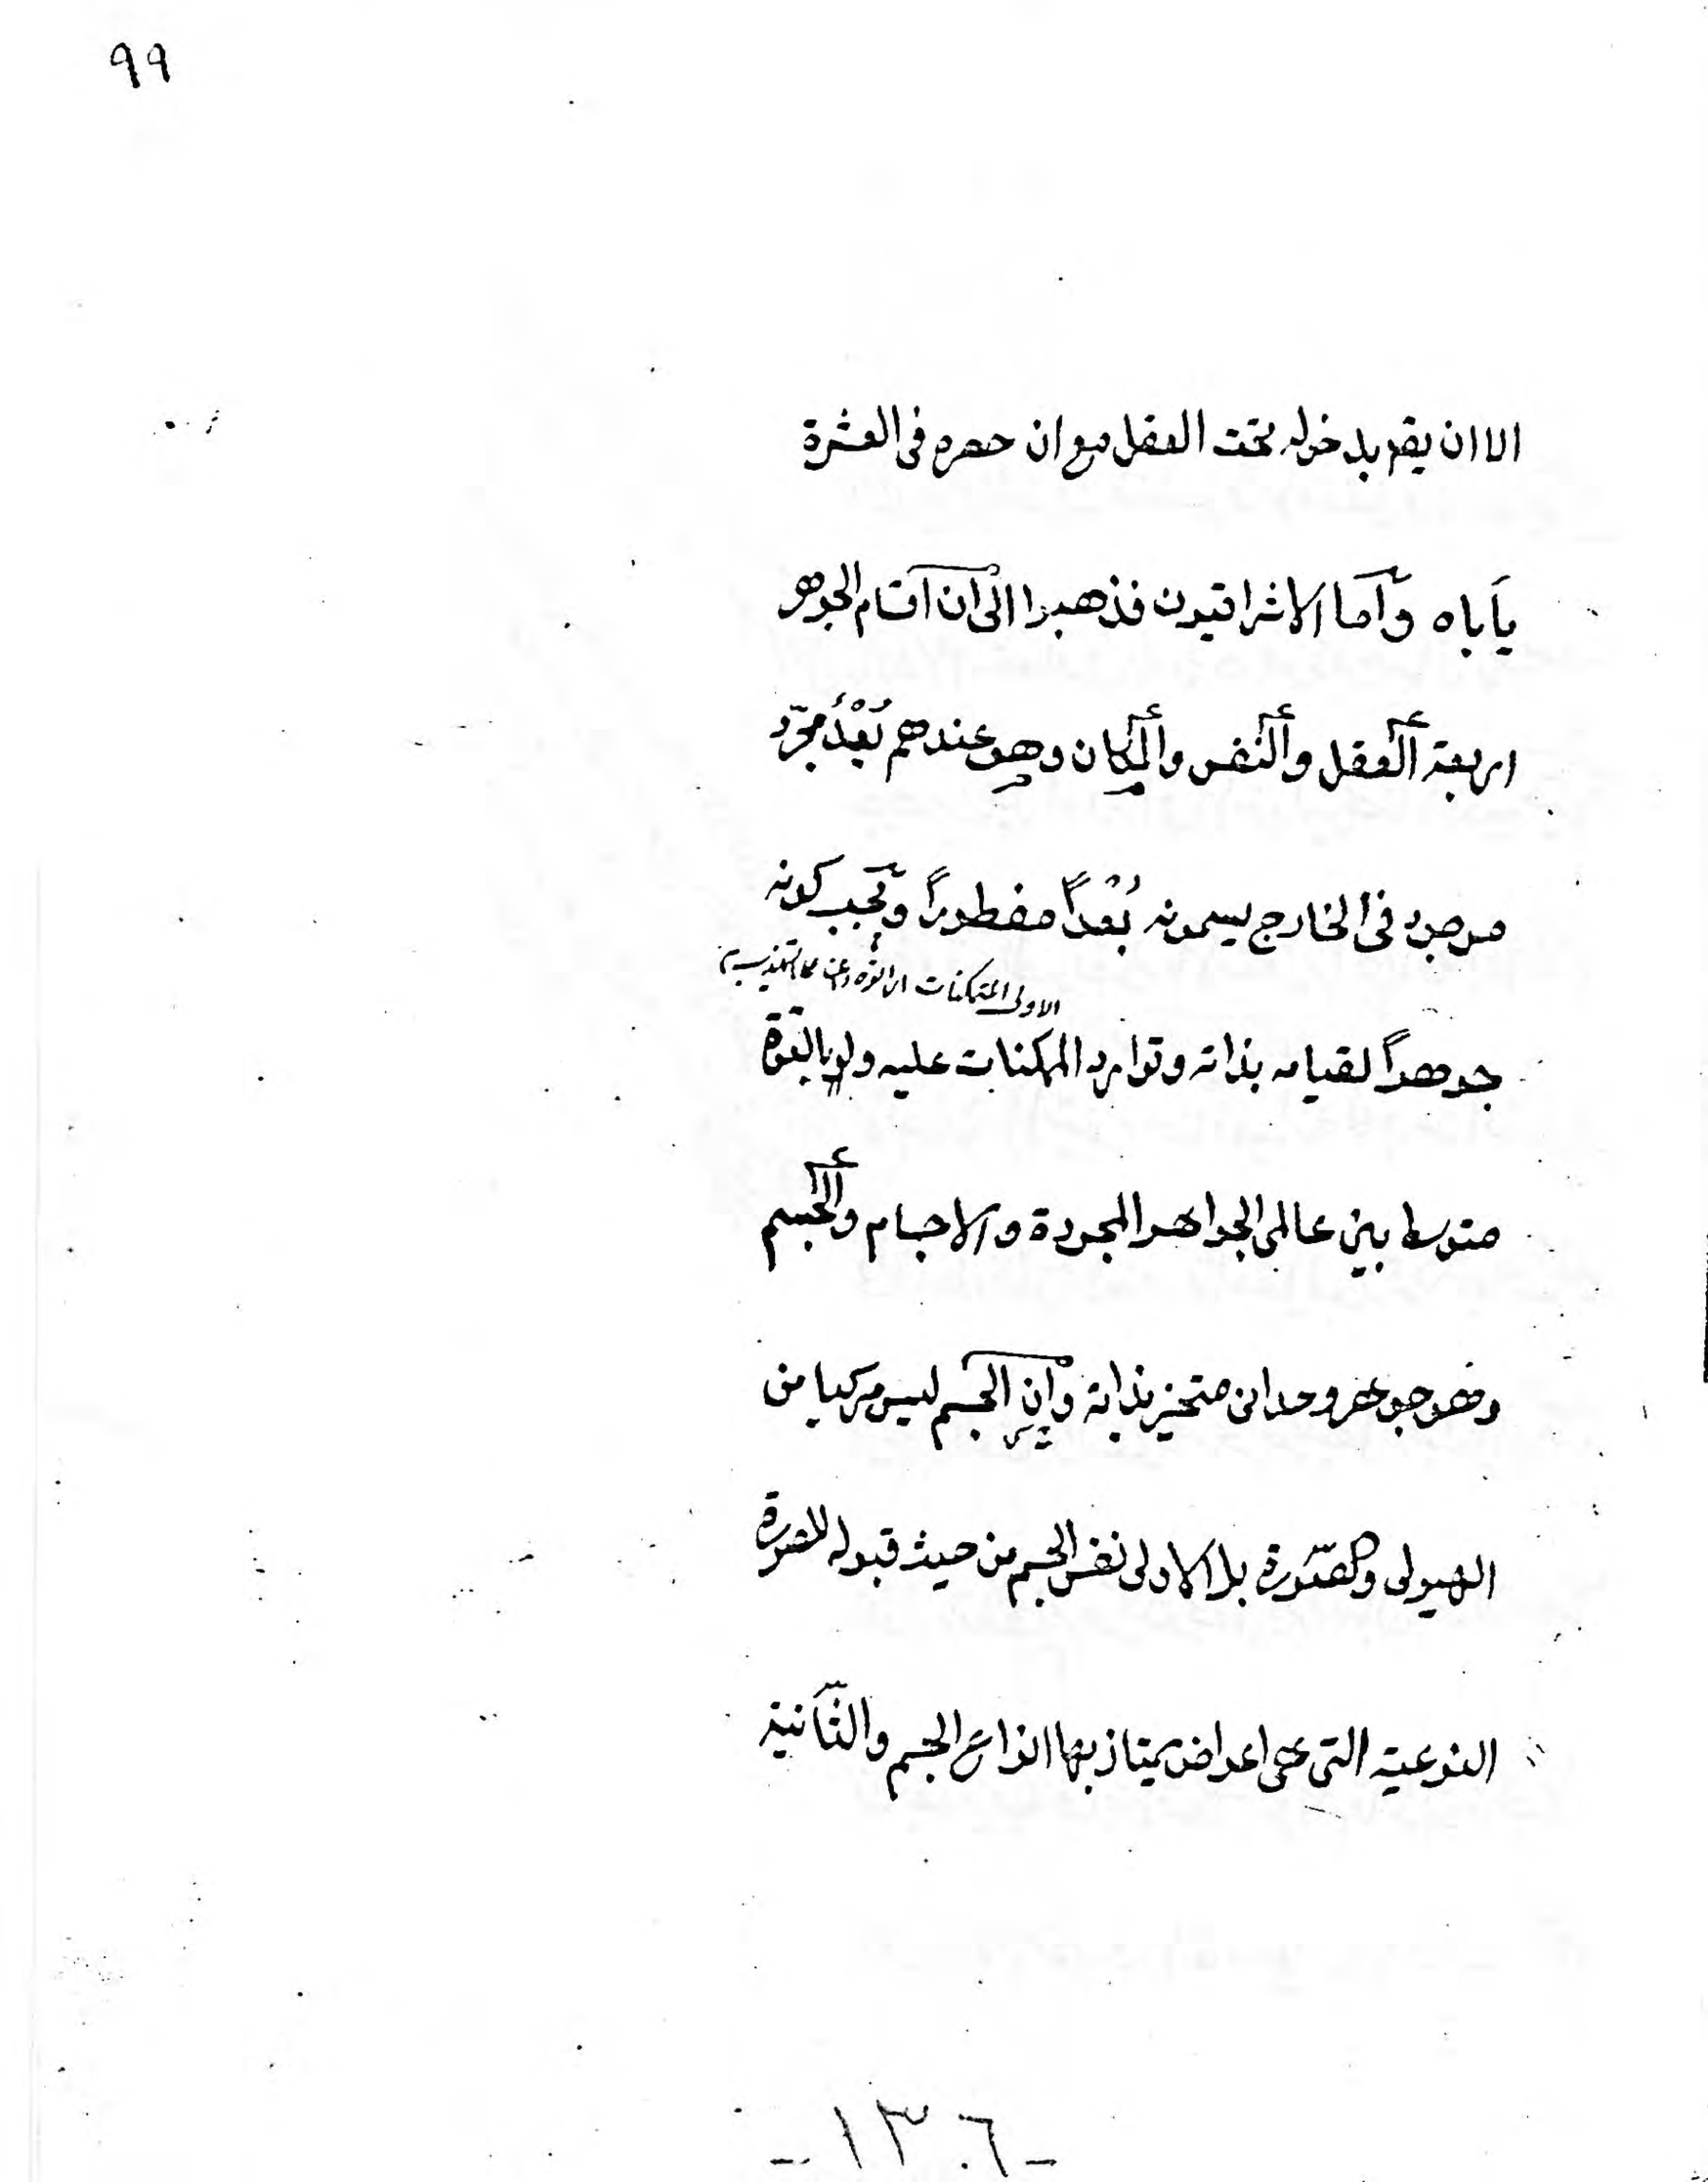 ٩٩
الا ان يقم بدخوله تحت العقل مع ان حصره فى العشرة
يأباه وأما الاشراقيون فذهبوا الى ان اقسام الجوهر
اربعة العقل والنفس والمكان وهو عندهم بُعْدٌ مجرّد
موجود فى الخارج يسمونه بُعْداً مفطوراً ويجب كونه
الاولى المتمكنات
جوهراً لقيامه بذاته وتوارد الممكنات عليه ولو بالقوة
متوسط بين عالمى الجواهر المجردة والاجسام والجسم
وهو جوهر وحدانى متحيز بذاته وان الجسم ليس مركبا من
الهيولى والصّورة بل الاولى نفس الجسم من حيث قبوله للصورة
النوعية التى هى اعراض يمتاز بها انواع الجسم والثّانية
-١٣٠٦-